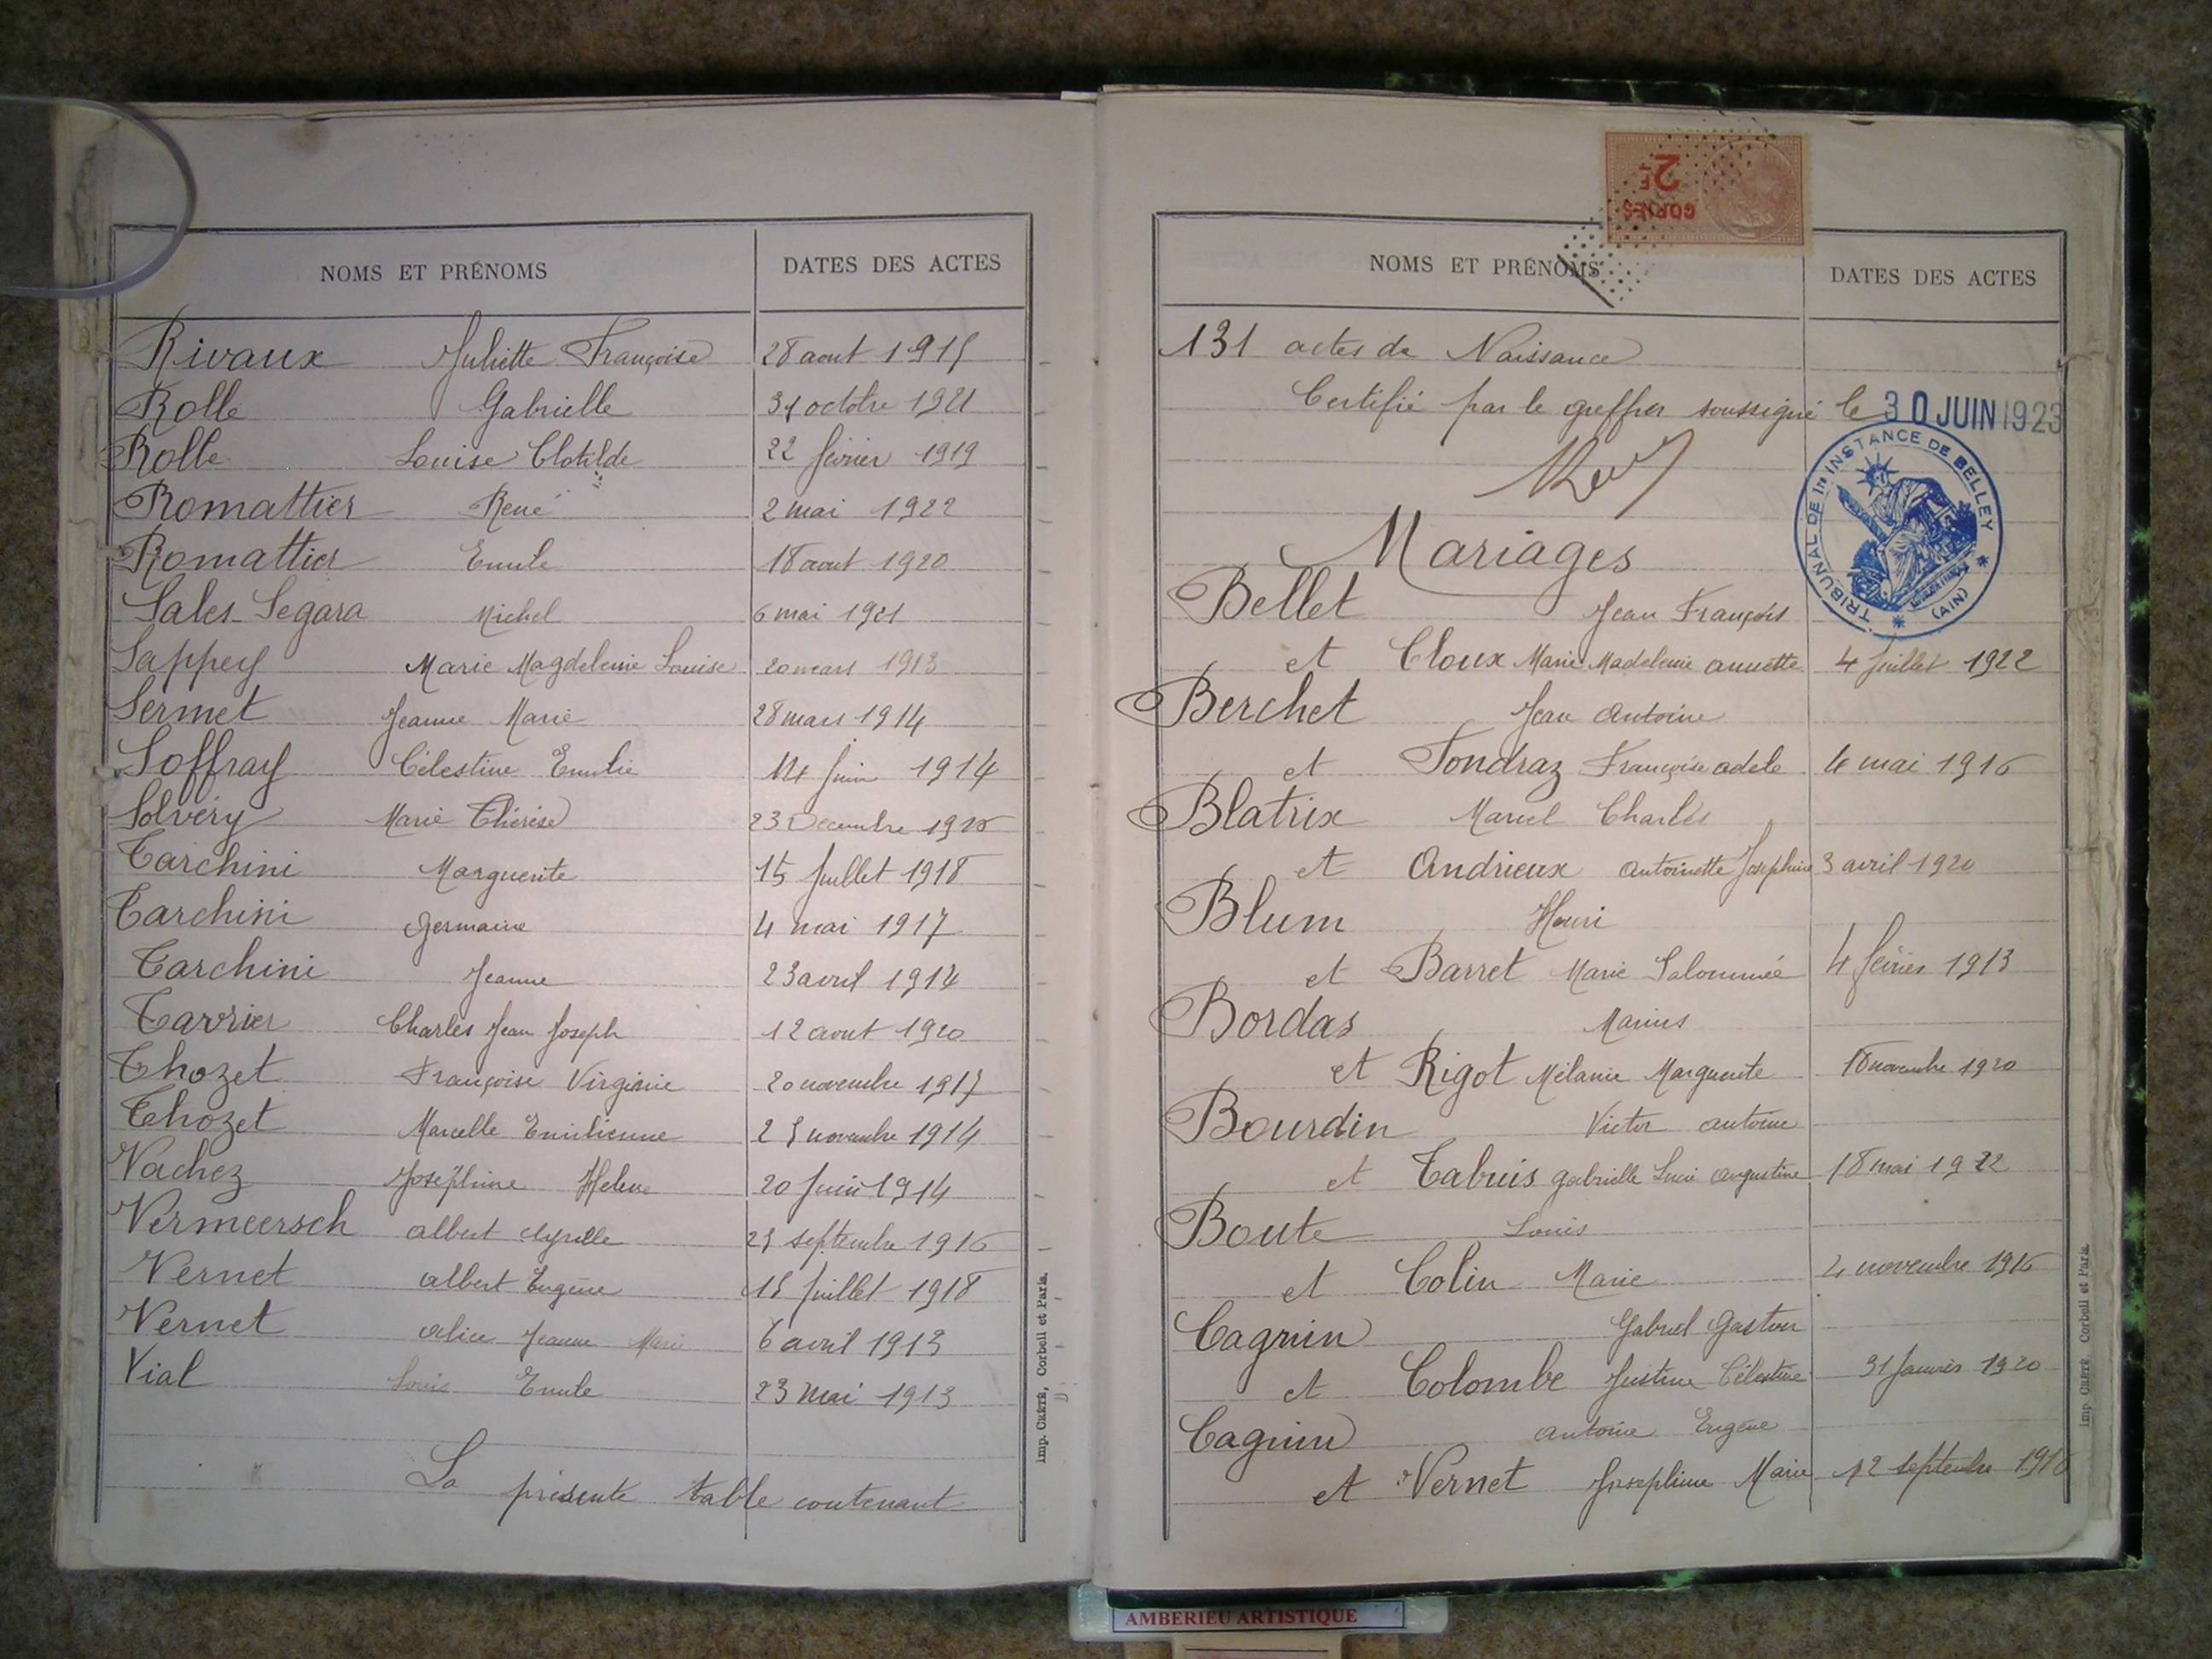 NOMS ET PRÉNOMS DATES DES ACTES
Rivaux Juliette Françoise 28 aout 1915
Rolle Gabrielle 31 octobre 1921
Rolle Louise Clotilde 22 février 1919
Romattier René 2 mai 1922
Romattier Emile 18 aout 1920
Sales-Segara Michel 6 mai 1921
Sappey Marie Magdeleine Louise 20 mars 1913
Sermet Jeanne Marie 28 mars 1914
Soffray Célestine Emilie 14 juin 1914
Solvéry Marie Thérèse 23 Decembre 1920
Tarchini Marguerite 15 Juillet 1918
Tarchini Germaine 4 mai 1917
Tarchini Jeanne 23 avril 1914
Tarrier Charles Jean Joseph 12 aout 1920
Thozet Françoise Virginie 20 novembre 1917
Thozet Marcelle Emilienne 25 novembre 1914
Vachez Joséphine Helene 20 Juin 1914
Vermeersch albert Cyrille 25 septembre 1916
Vernet albert Eugène 15 Juillet 1918
Vernet alice Jeanne Marie 6 avril 1913
Vial Louis Emile 23 Mai 1913
La présente table contenant
Imp. CRÉTÉ, Corbeil et Paris.
2F
NOMS ET PRÉNOMS DATES DES ACTES
131 actes de Naissance
Certifié par le greffier soussigné le 30 JUIN 1923
TRIBUNAL DE 1re INSTANCE DE BELLEY (AIN)
Mariages
Bellet Jean François
et Cloux Marie Madeleine annette 4 Juillet 1922
Berchet Jean Antoine
et Tondraz Françoise adele 4 mai 1916
Blatrix Marcel Charles
et Andrieux Antoinette Joséphine 3 avril 1920
Blum Henri
et Barret Marie Salommée 4 février 1913
Bordas Marius
et Rigot Mélanie Marguerite 18 novembre 1920
Bourdin Victor antoine
et Tabuis Gabrielle Lucie augustine 18 mai 1922
Boute Louis
et Colin Marie 4 novembre 1916
Cagnin Gabriel Gaston
et Colombe Justine Célestine 31 Janvier 1920
Cagnin Antoine Eugène
et Vernet Joséphine Marie 12 septembre 1918
Imp. CRÉTÉ, Corbeil et Paris.
AMBERIEU ARTISTIQUE